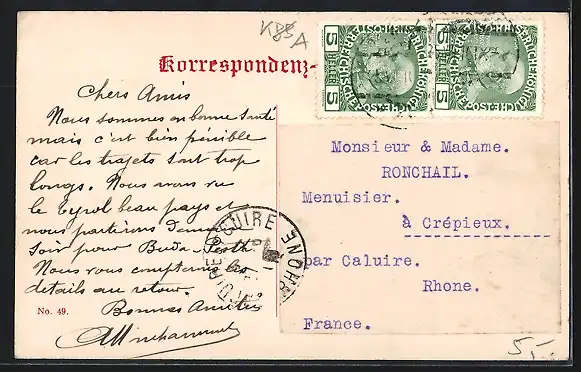 KBØ
85A
5 HELLER 5
5 HELLER 5
Korrespondenz-
Chers Amis
Nous sommes en bonne santé
mais c'est bien pénible
car les trajets sont trop
longs. Nous avons vu
le Tyrol beau pays et
nous partirons
soir pour Buda Pesth
Nous vous compterons les
details au retour.
Bonnes Amitiés
No. 49.
Monsieur & Madame.
RONCHAIL.
Menuisier.
à Crépieux.
par Caluire.
Rhone.
France.
CUIRE
RHONE
5,-